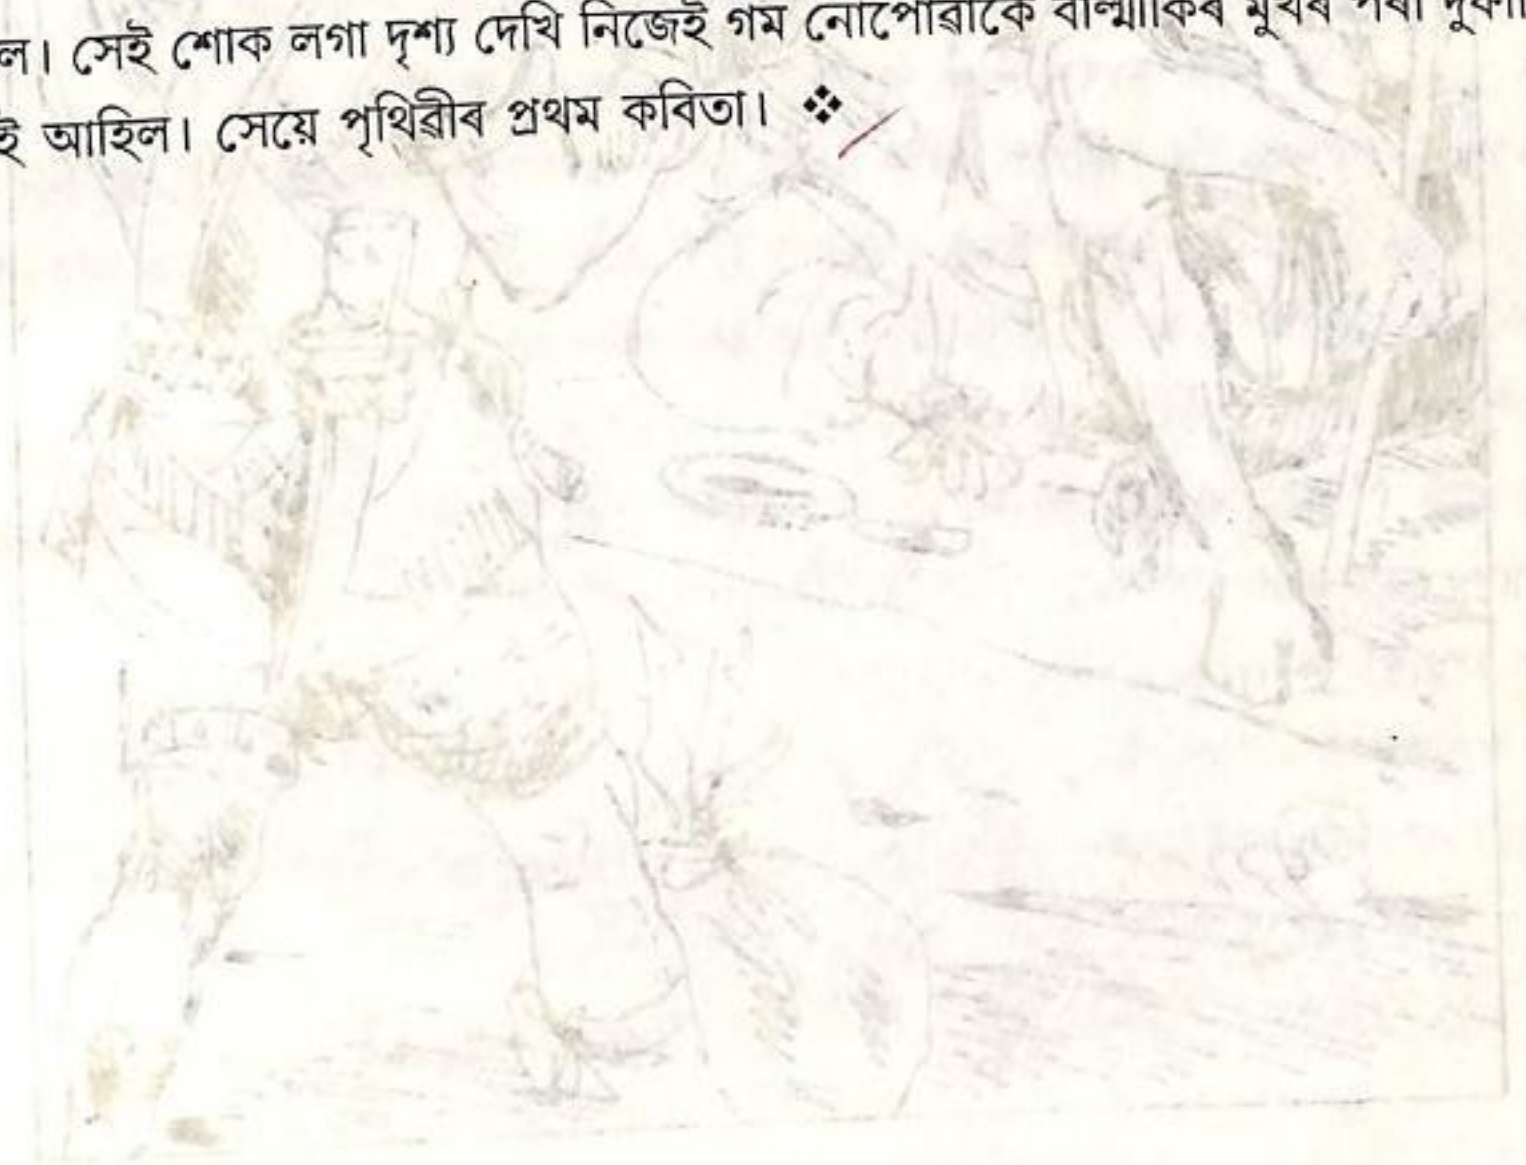 ল। সেই শোক লগা দৃশ্য দেখি নিজেই গম নোপোৱাকৈ বাল্মীকিৰ মুখৰ পৰা
ই আহিল। সেয়ে পৃথিৱীৰ প্ৰথম কবিতা। ❖